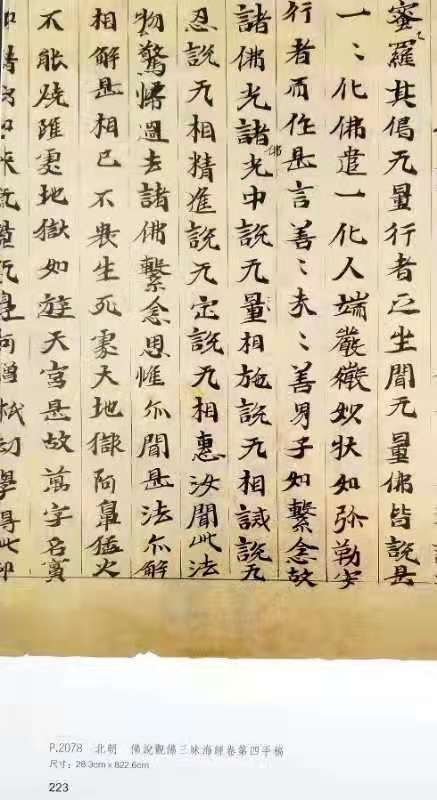 蜜羅其偈无量行者㝎坐聞无量佛皆說是
一〻化佛遣一化人端嚴微妙狀如弥勒安
行者而作是言善〻男子如繫念故
諸佛光諸光中說无量相施說无相誡說无
佛
忍說无相精進說无㝎說无相惠汝聞此法
物驚過去諸佛繫念思惟尒聞是法尒解
相解是相已不畏生死處大地獄阿鼻猛火
不能燒雖處地獄如遊天宮是故萬字名實
P.2078 北朝 佛說觀佛三昧海經卷第四手稿
尺寸：28.3cm x 822.6cm
223